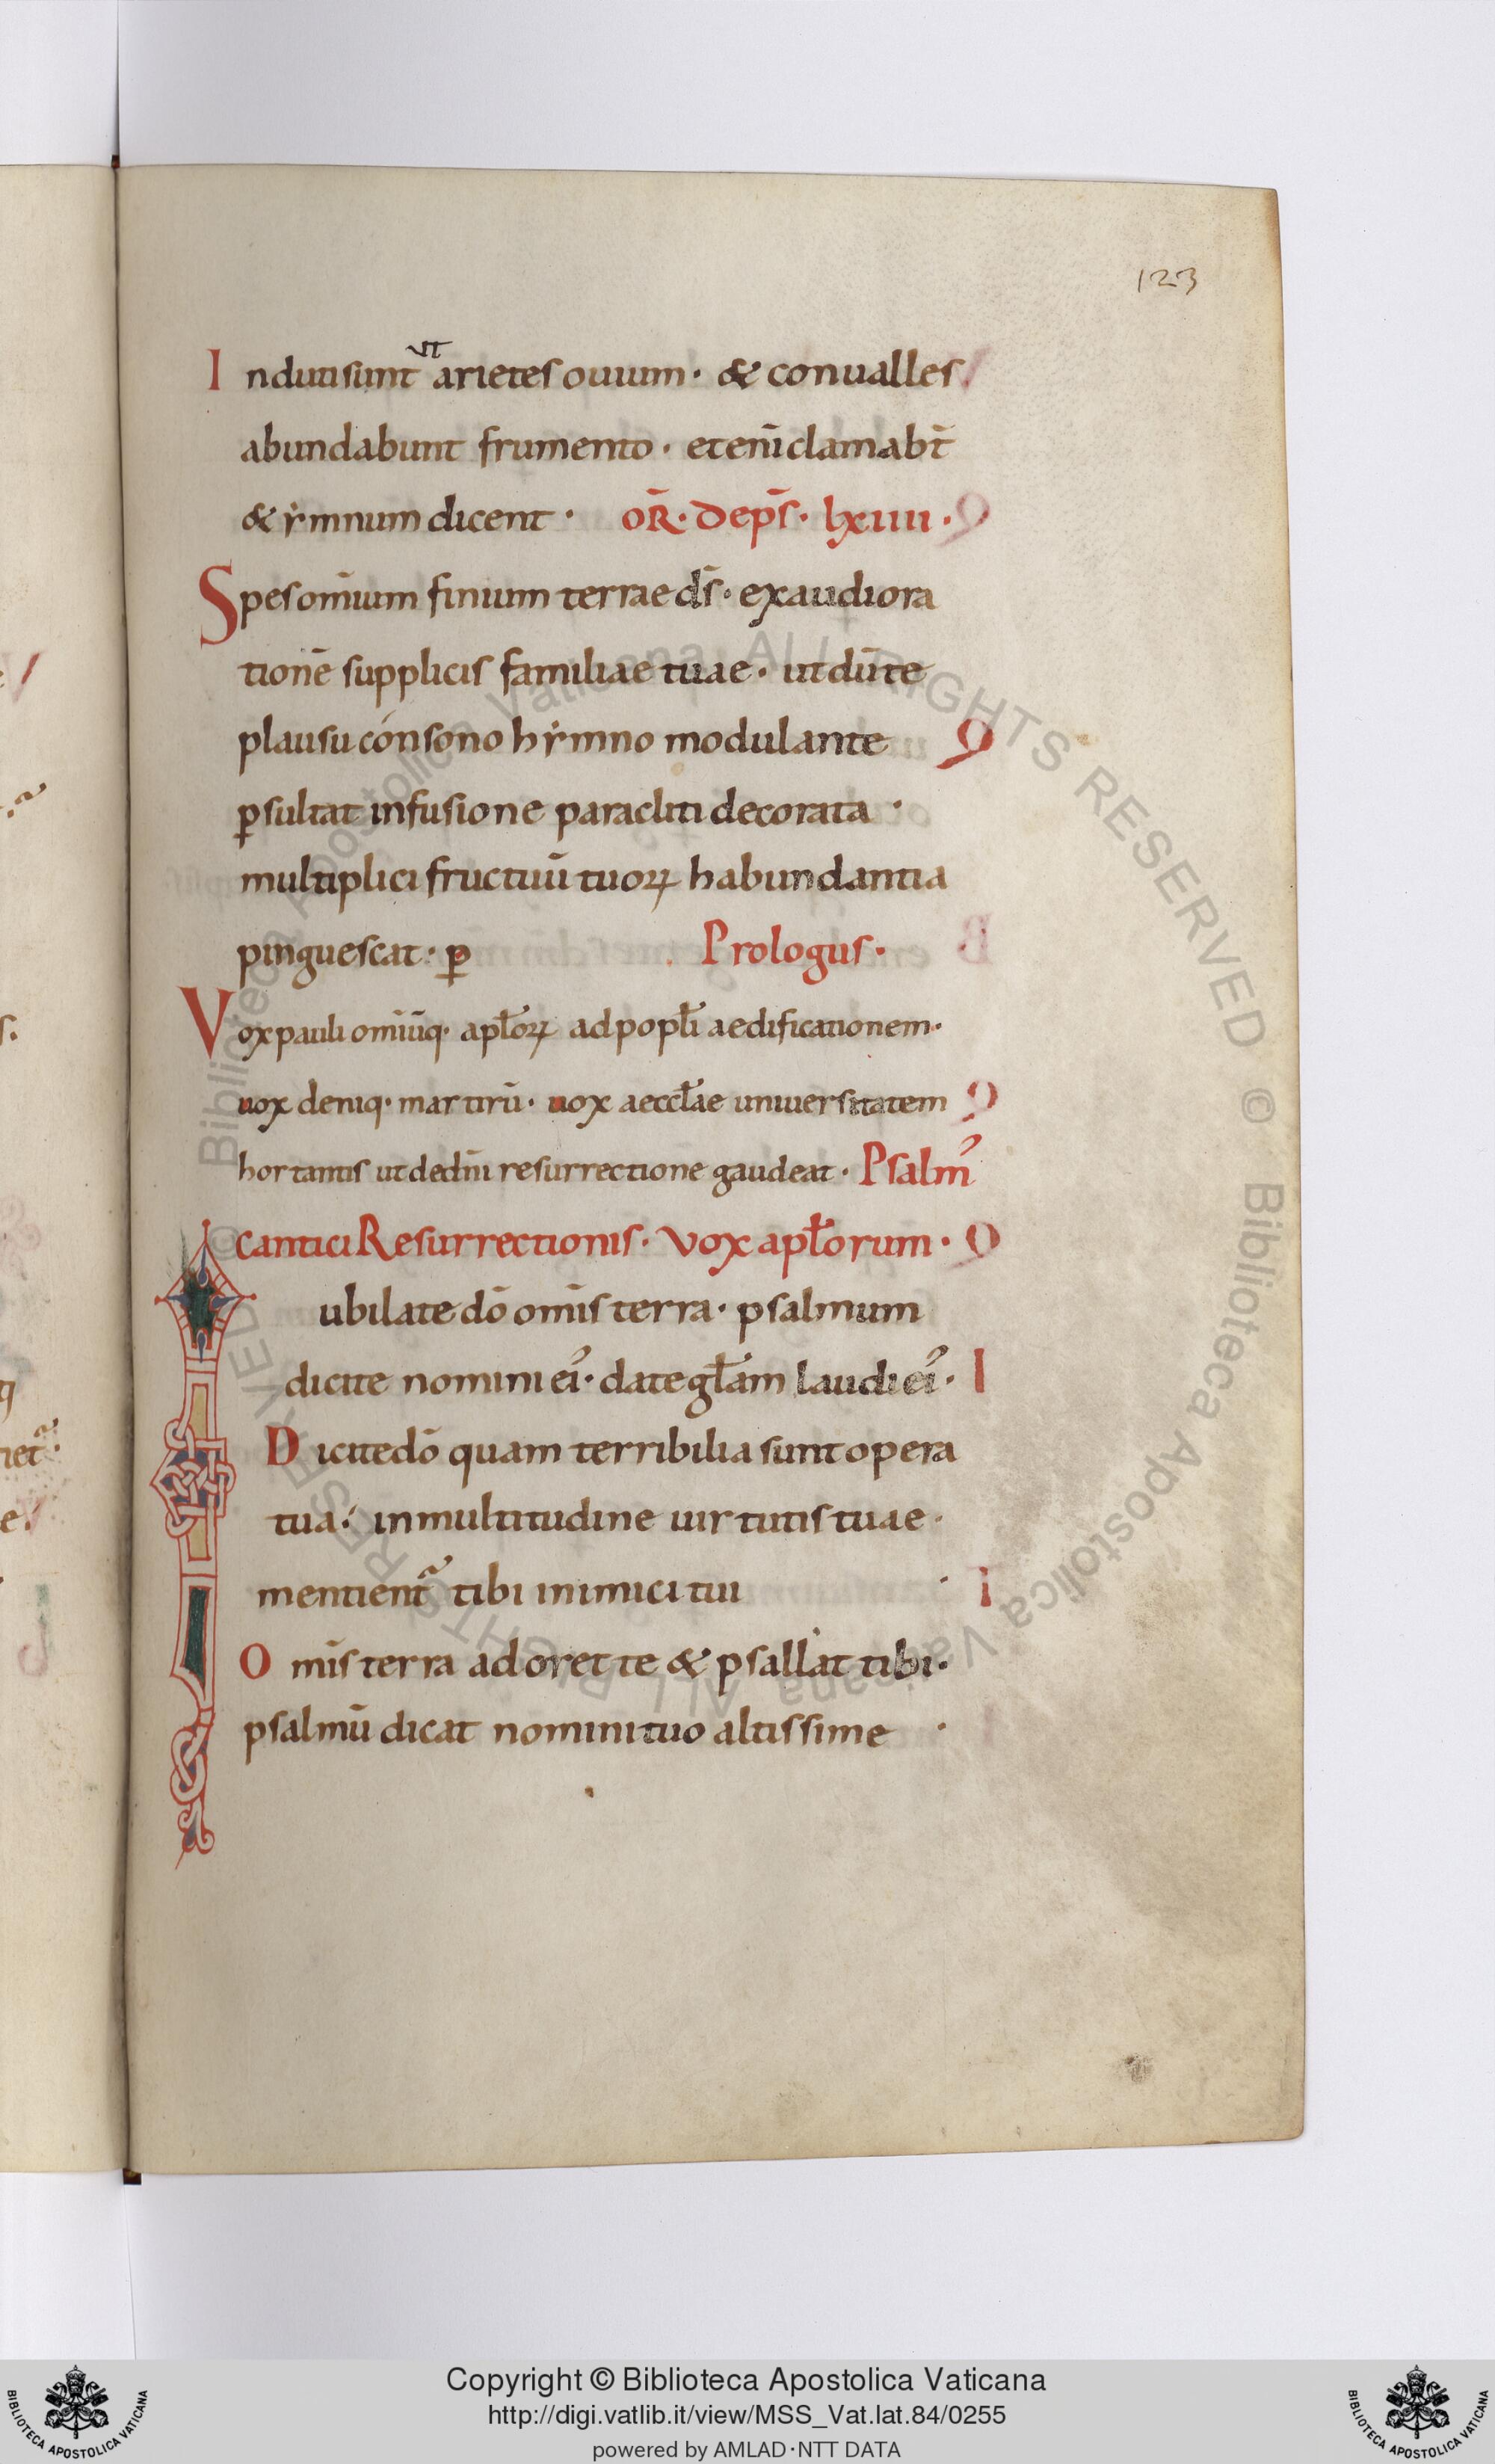 123
ut
Indutisunt arietes ouium· & conualles
abundabunt frumento· etenī clamabt̄
& ẏmnum dicent· oR̄· De ps̄· lxiiii·
Spes om̄ium finium terrae ds̄· exaudi ora
tionē supplicis familiae tuae· ut dū te
plausu cónsono hẏmno modulante
ꝑsultat infusione paracliti decorata·
multiplici fructuū tuoꝝ habundantia
pinguescat· ꝑ Prologus·
Vox pauli om̄iūq· apl̄oꝝ ad popl̄i aedificationem·
uox deniq· martirū· uox aeccl̄ae uniuersitatem
hortantis ut de dn̄i resurrectione gaudeat· Psalm᾿
cantici Resurrectionis· Vox apl̄orum·
Iubilate dō om̄is terra· psalmum
dicite nomini ei᾿· date gl̄am laudi ei᾿·
Dicite dō quam terribilia sunt opera
tua; in multitudine uirtutis tuae·
mentient᾿ tibi inimici tui·
Om̄is terra adoret te & psallat tibi·
psalmū dicat nomini tuo altissime·
© Biblioteca Apostolica Vaticana ALL RIGHTS RESERVED © Biblioteca Apostolica Vaticana ALL RIGHTS RESERVED
Copyright © Biblioteca Apostolica Vaticana
http://digi.vatlib.it/view/MSS_Vat.lat.84/0255
powered by AMLAD·NTT DATA
BIBLIOTECA APOSTOLICA VATICANA
BIBLIOTECA APOSTOLICA VATICANA